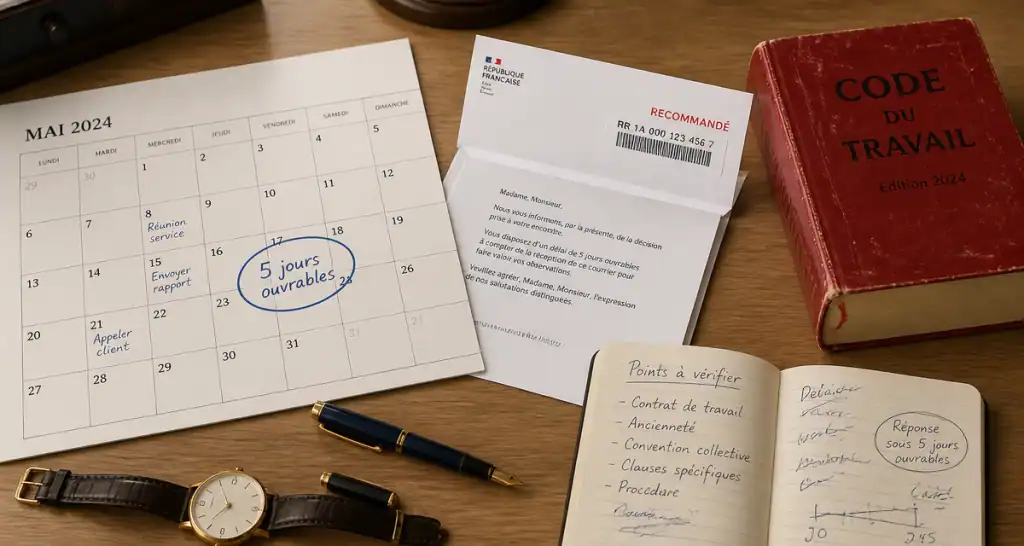 MAI 2024
LUNDI MARDI MERCREDI JEUDI VENDREDI SAMEDI DIMANCHE
29 30 1 2 3 4 5
6 7 8 9 10 11 12
Réunion
service
13 14 15 16 17 18 19
Envoyer
rapport
5 jours
ouvrables
20 21 22 23 25 26
Appeler
client
27 28 29 30 31
RÉPUBLIQUE
FRANÇAISE
RECOMMANDÉ
RR 1A 000 123 456 7
Madame, Monsieur,
Nous vous informons, par la présente, de la décision
prise à votre encontre.
Vous disposez d'un délai de 5 jours ouvrables
à compter de la réception de ce courrier pour
faire valoir vos observations.
Veuillez agréer, Madame, Monsieur, l'expression
de nos salutations distinguées.
CODE
DU
TRAVAIL
Edition 2024
Points à vérifier
- Contrat de travail
- Ancienneté
- Convention collective
- Clauses spécifiques
- Procédure
Réponse
sous 5 jours
ouvrables
J0 J45